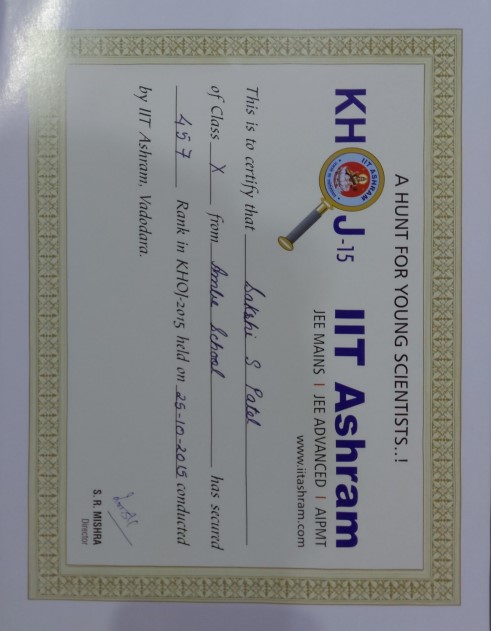 A HUNT FOR YOUNG SCIENTISTS..!
KH J-15 IIT Ashram
IIT ASHRAM
JEE MAINS | JEE ADVANCED | AIPMT
www.iitashram.com
This is to certify that Sakshi S Patel
of Class X from Ambe School has secured
457 Rank in KHOJ-2015 held on 25-10-2015 conducted
by IIT Ashram, Vadodara.
S. R. MISHRA
Director